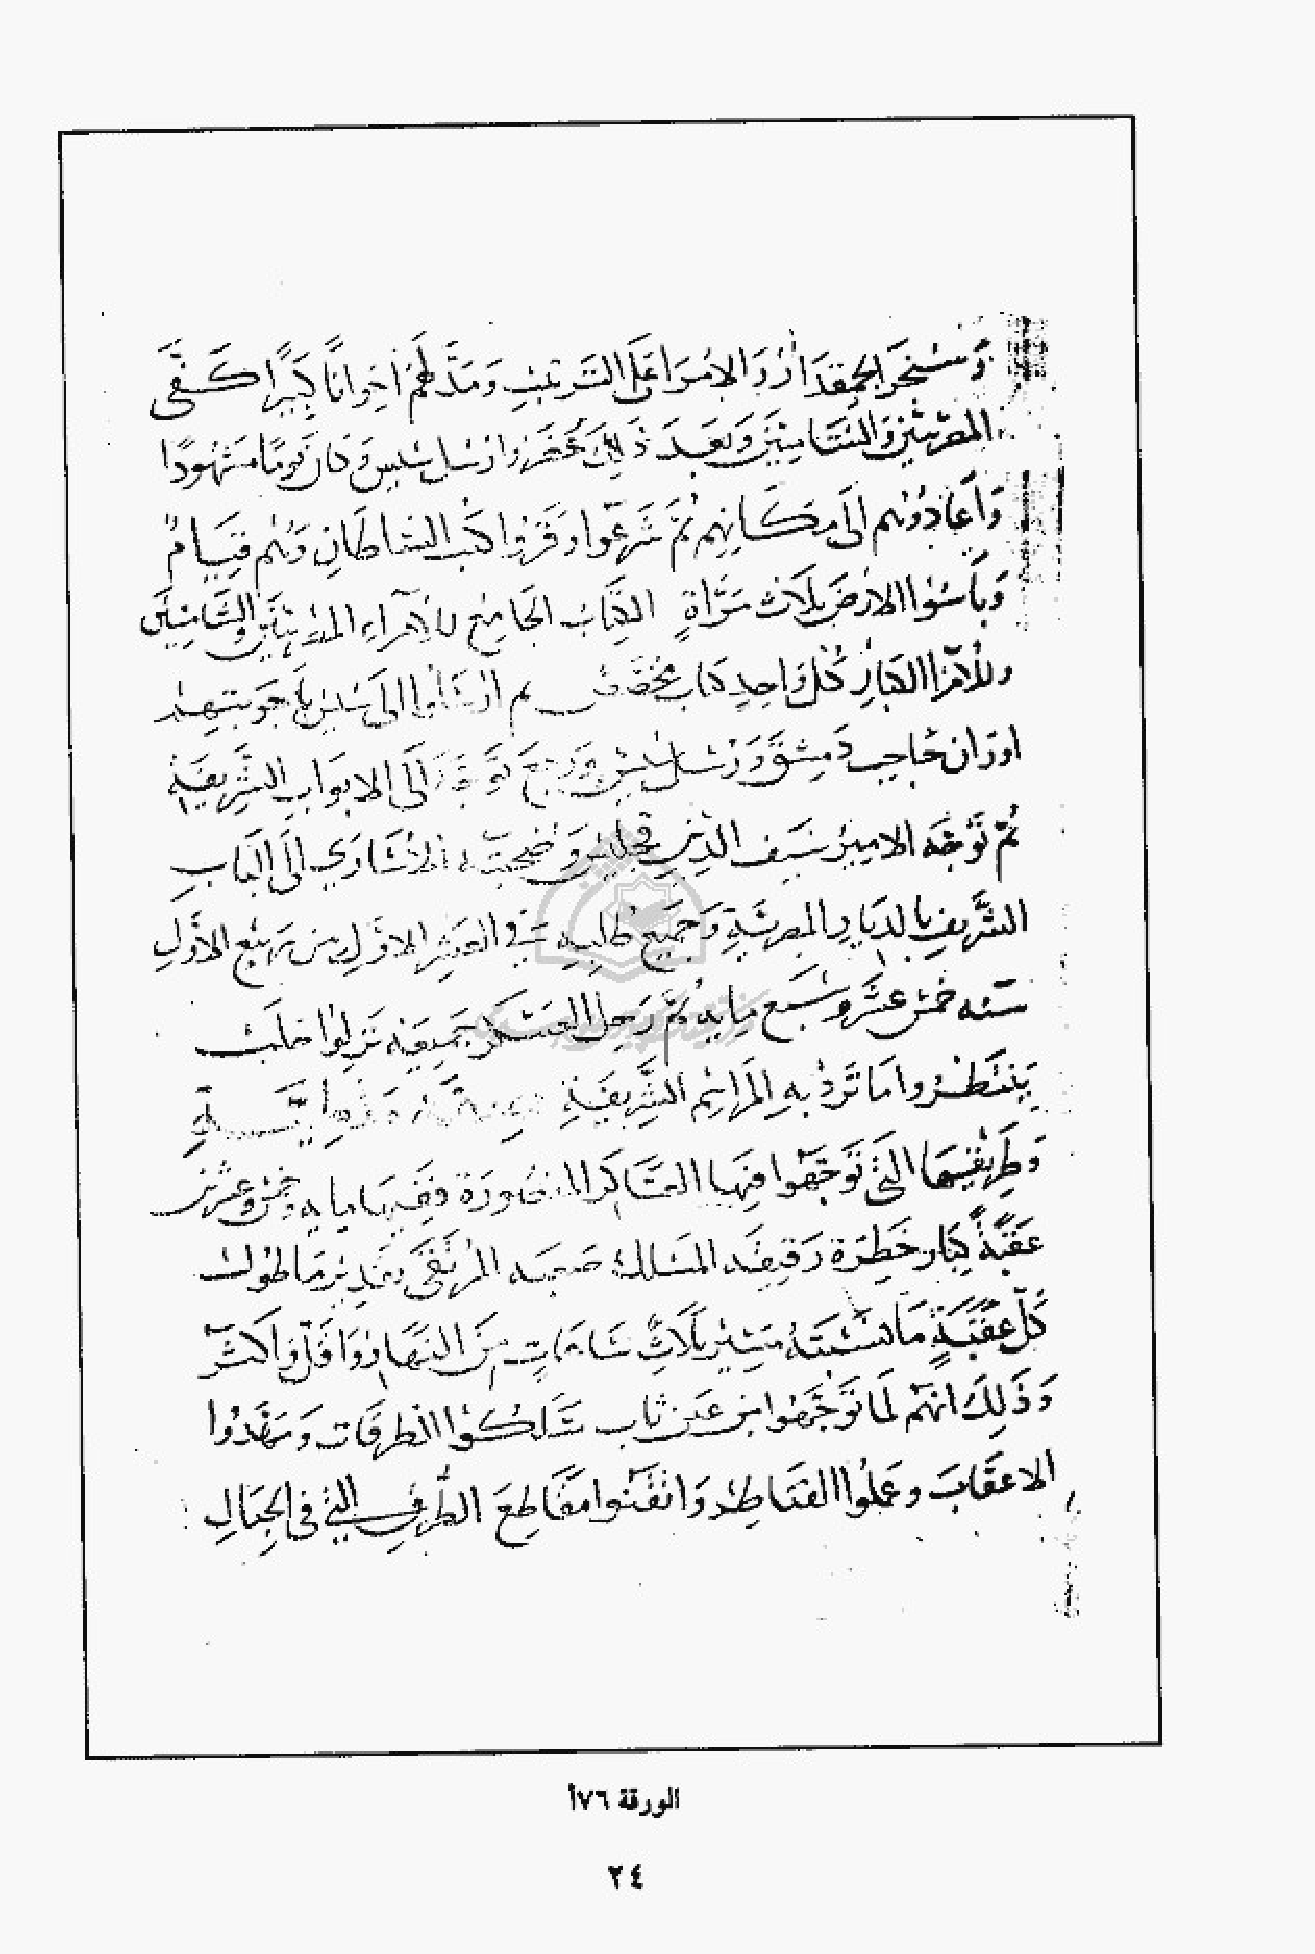 وَسنجر الجمقدار وَالامرَا عَلى التَرتيب وَمَدَّ لَهُم اخِوانًا كَبيرًا كَفَى
المصرِيّين وَالشَاميّين وَبَعدَ ذَلِكَ حضرَ وارسل سيس وَكان يَومًا مَشهُودًا
وَأعَادُوهُم الَى مكَانِهم ثُمَّ شَرَعوا وَقَروا كتب السُلطانِ وَهُم قِيَامٌ
وَبَاسُوا الارضَ ثلاث مَرَّاةٍ الكِتَاب الجَامِع للامَراءِ المصريّين وَالشَاميّين
وللأمرَا الكبارِ كُل وَاحِدِ كتاب مخُصّص ثم ارسَلوا الى سيس
اوران حَاجب دَمِشق وَرُسل سيس الَى الابوَاب الشَرِيفَة
ثُمّ تَوَجَّه الامير سَيف الدّين قجليس وَصُحبَته الاسَارَى الَى البَاب
الشَّريف بالديَار المصريَّةِ وَجَميع طلبه في العَشِر الاوّل من رَبيع الأوّلِ
سَنه خمس عَشَر وسَبع مايه ثُمَّ رَحل العَسكَر جَميعَه نَزلوا حَلَب
يَنتَظروا مَا تَردُ بهِ المَرَاسم الشَّريفَةِ مَلَطيَّةِ
وَطَريقهَا التي تَوَجّهَوا فيهَا العَسَاكر المَنصُورَة فَفيهَا مايه وخمس وعشرين
عَقَبَةً كِبَار خَطِرَة دَقيقَه المَسَالك صَعبَه المُرتَقَى تَقدير مَا طُول
كُلّ عَقَبَةٍ مَا نسبَتهُ مَسير ثَلَاثِ سَاعَاتٍ مِنَ النَهَار وَاقَلّ وَاكثر
وَذَلِكَ انهُم لَمَا تَوَجَّهُوا من عَين تاب سَلكُوا الطرقَات وَمَهَّدُوا
الاعقَابَ وعَملوُا القنَاطر وَاتقَنوا مقَاطِعَ الطُرقِ التي في الجِبَالِ
الورقة ٧٦أ
٢٤